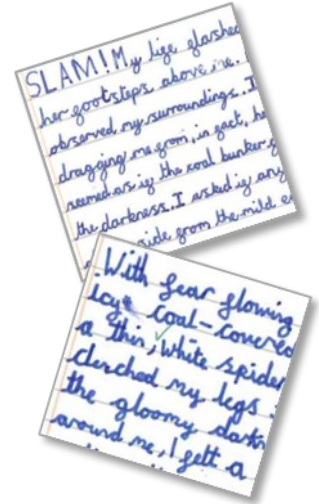 SLAM! My life flashed
her footsteps above me.
observed my surroundings. I
dragging me from, in fact, he
seemed as if the coal bunker
the darkness. I asked if any
side from the mild
With fear flowing
icy coal-covered
a thin, white spider
clenched my legs
the gloomy dark
around me, I felt a